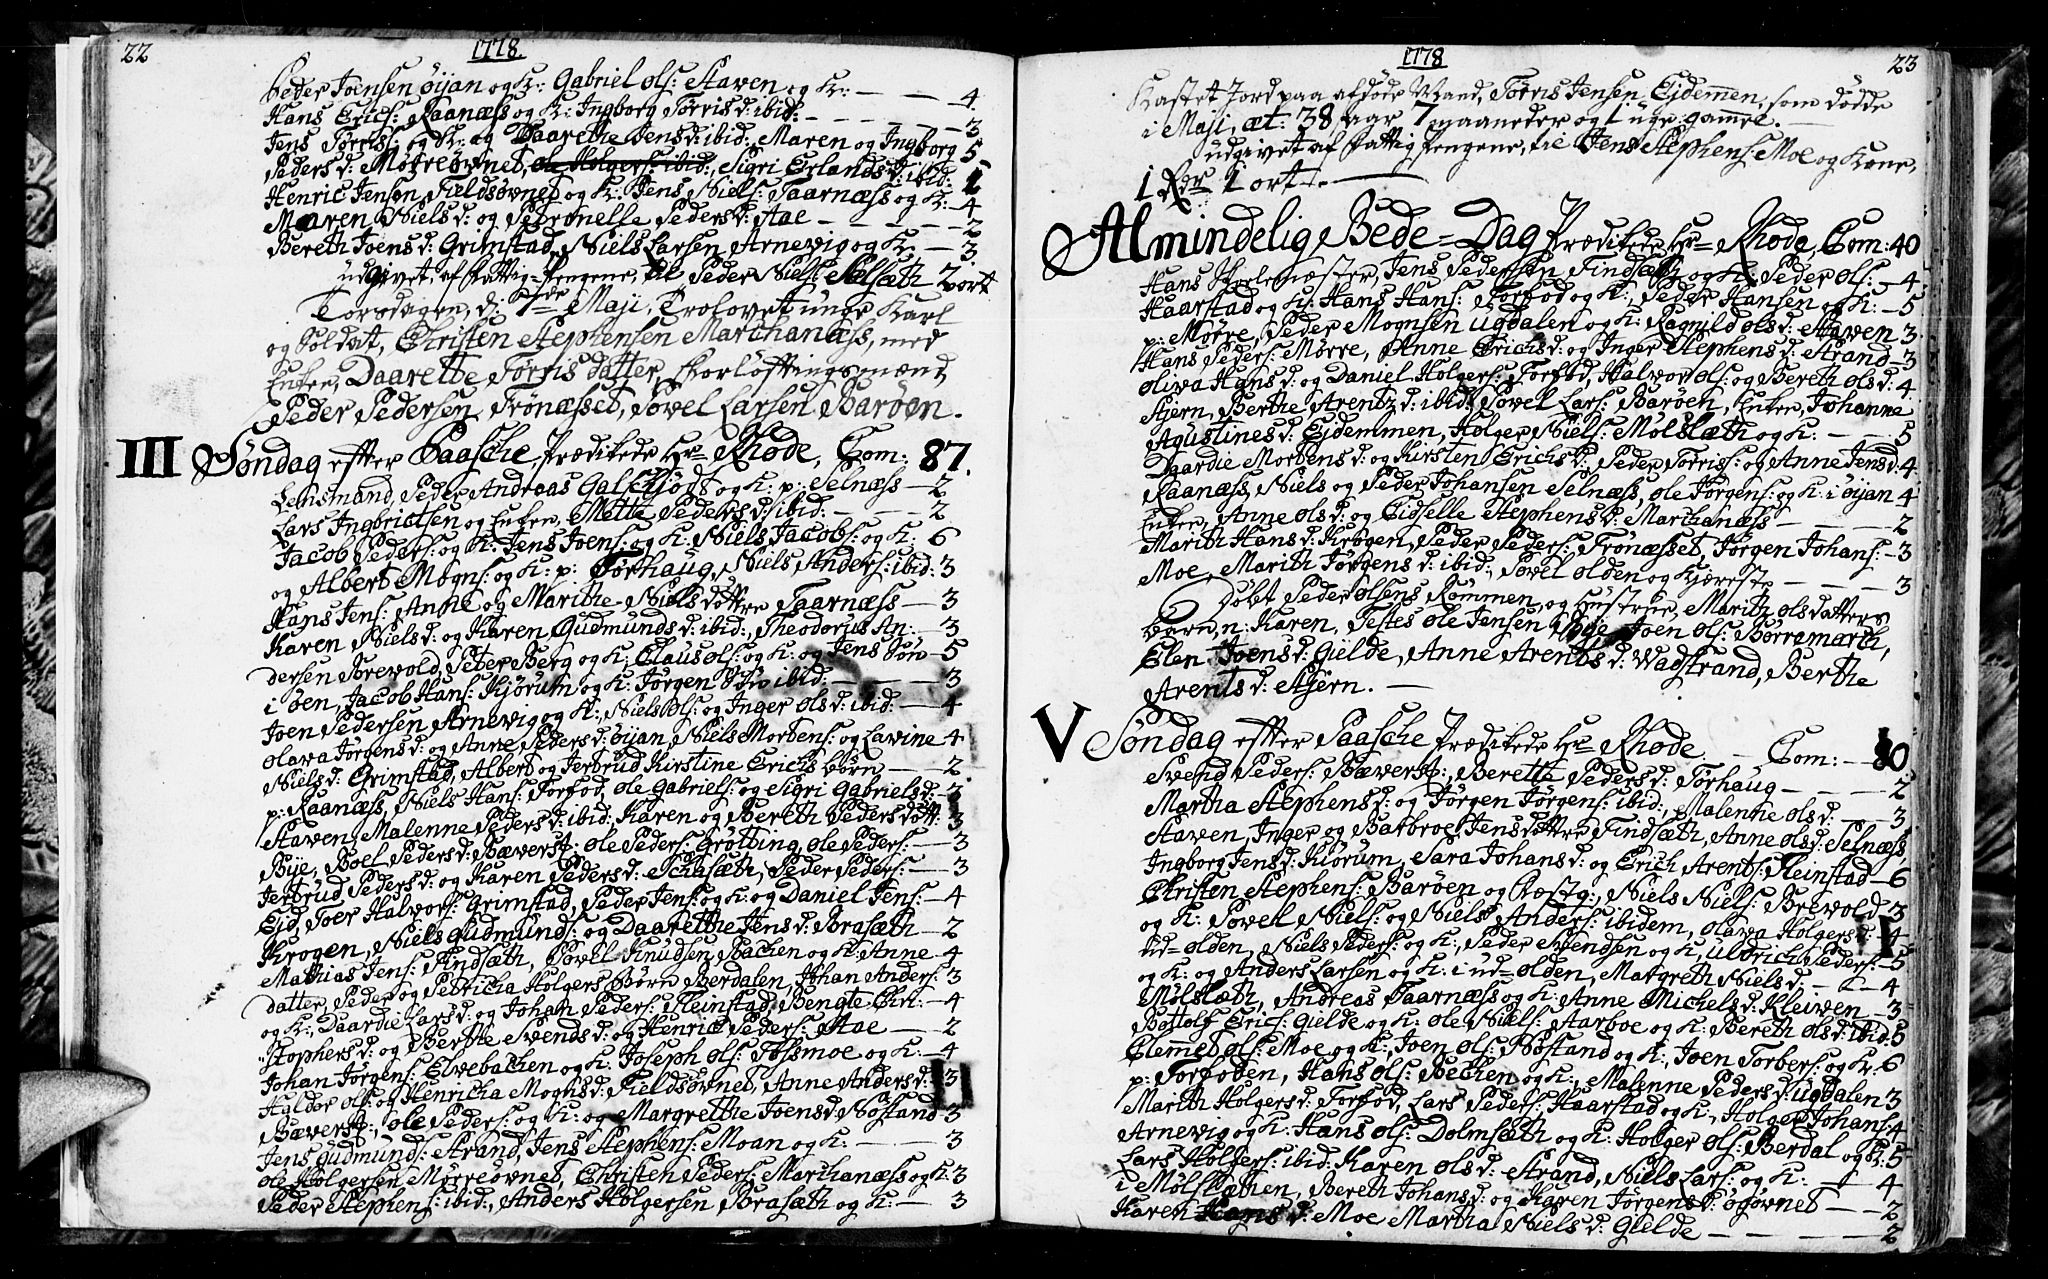 22
1778.
Peder Joensen øijan og K: Gabriel Ols: Staven og K: — — — 4
Hans Erics: Raanæss og K: Ingborg Torrisd: ibid: — — — 3
Jens Torris: og K: og Daarethe Jensd: ibid: Maren og Ingborg 5
Pedersd: Morreøvnet, ole Holgers: ibid:, Sigri Erlandsd: ibid:
Henric Jensen Fieldsøvnet og K: Jens Niels: Taarnæss og K: — 4
Maren Nielsd: og Petronelle Pedersd: Aae — — — 2
Bereth Joensd: Grimstad, Niels Larsen Arnevig og K: — 3
udgivet af Fattig-Pengene, til Peder Niels: Selsæth 2 ort
Torsdagen, d: 7de Maji, Trolovet unge Karl
og Soldat, Christen Stephensen Marchanæss, med
Enken, Daarethe Torris datter, Forløftningsmænd,
Peder Pedersen Trønæsset, Povel Larsen Barøen.
III Søndag efter Paasche, Prædikede Hr Rhode, Com: 87.
Lensmand, Peder Andreas Galtschiøt og K: p: Selnæss — 2
Lars Ingbrictsen og Enken, Mette Pedersd: ibid: — — — 2
Jacob Peders: og K: Jens Joens: og K: Niels Jacobs: og K: 6
og Albert Mogns: og K: p: Torhaug, Niels Anders: ibid: 3
Hans Jens: Anne og Marithe Niels døttre Taarnæss — 3
Karen Nielsd: og Karen Gudmundsd: ibid:, Theodorus An: — 3
dersen Brevold, Peder Berg og K: Claus ols: og K: og Jens Søn — 5
i øen, Jacob Hans: Kjørum og K: Jørgen Søn ibid: — — — 3
Joen Pedersen Arnevig og K:, Niels Ols: og Inger Olsd: ibid: — 4
Olava Jørgensd: og Anne Pedersd: øijan, Niels Mortens: og Lavine 4
Nielsd: Grimstad, Albert og Jertrud Kirstine Erichs børn — 2
p: Raanæss, Niels Hans: Torfod, Ole Gabriels: og Sigri Gabrielsd: — 3
Staven, Malenne Pedersd: ibid: Karen og Bereth Peders døtt: 3
Bije, Boel Pedersd: Bæverst: ole Peders: Grøtting, ole Peders: — 3
Jertrud Pedersd: og Karen Pedersd: Schisæth, Peder Peders: — 3
Eid, Joer Halvors: Grimstad, Peder Jens: og K: og Daniel Jens: — 4
Krogen, Niels Gudmunds: og Daarethe Jensd: Brasæth — 2
Mathias Jens: Findsæth, Povel Knudsen Bachen og K: Anne 4
datter, Peder og Petricha Holgers Børn Berdalen, Johan Anders: 3
og K:, Daardie Larsd: og Johan Peders: Fleinstad, Bengte Chri: — 4
stophersd: og Berthe Svendsd: og Henric Peders: Aae — 2
Johan Jørgens: Elvebachen og K: Joseph Ols: Fossmoe og K: — 4
Haldor Ols: og Henricha Mognsd: Fieldsøvnet, Anne Andersd: 3
Bæverst:, ole Peders: og K: og Margrethe Joensd: Nøstand 3
Jens Gudmunds: Strand, Jens Stephens: Moan og K: — — 3
ole Holgersen Morreøvnet, Christen Peders: Marchanæss og K: 3
Peder Stephens: ibid:, Anders Holgersen Brasæth og K: — 3
1778
23
Kastet Jord paa afdøde Mand, Torris Jensen Eidemmen, som døde
i Maji, æt: 38 aar 7 maaneder og 1 uge gamel. —
udgivet af Fattig Pengene, til Jens Stephens: Moe og Kone,
1 Rdr 1 ort. —
Almindelig Bede=Dag Prædikede Hr Rhode, Com: 40
Hans Jens Pedersen Findsæth og K: Peder Ols: — 4
Haarstad og K: Hans Hans: Torfod og K:, Peder Hansen og K: — 5
p: Mørre, Peder Mognsen Ugdalen og K: Ragnild Olsd: Staven 3
Hans Peders: Mørre, Anne Erichsd: og Inger Stephensd: Strand — 3
Oliva Hansd: og Daniel Holgers: Torfod, Halvor Ols: og Bereth Olsd: 4
Stjern, Berthe Arentzd: ibid: Povel Lars: Barøen, Enken, Johanne
Agustinesd: Eidemmen, Holger Niels: Mølslæth og K: — — 5
Daardie Mortensd: og Kirsten Erichsd:, Peder Torris: og Anne Jensd: 4
Raanæss, Niels og Peder Johansen Selnæss, ole Jørgens: og K: i øijan 4
Enken, Anne Olsd: og Eidselle Stephensd: Marchanæss — — — 2
Marith Hansd: Krogen, Peder Peders: Trønæsset, Jørgen Johans: — 3
Moe, Marith Jørgensd: ibid:, Povel Olden og Kjæreste — — — 3
Døbt Peder Olsens Rømmen og Hustrue, Marith Olsdatters
barn, n: Karen, Testes Ole Jensen Bije Joen Ols: Borramarch,
Elen Joensd: Gielde, Anne Arentsd: Wadstrand, Berthe
Arentsd: Stjern. —
V Søndag efter Paasche Prædikede Hr Rhode — Com: — 80
Svend Peders: Bæverst:, Berette Pedersd: Torhaug — — — 2
Martha Stephensd: og Jørgen Jørgens: ibid:, Malenne Olsd: — 3
Staven, Inger og Barbroe Jens døttre Findsæth, Anne Olsd: Selnæss,
Ingborg Jensd: Kiørum, Sara Johansd: og Erich Arents: Fleinstad — 6
Christen Stephens: Barøen og Niels Niels: Brevold 3
og K: Povel Niels: og Niels Anders: ibidem, Olava Holgersd: 4
ud=olden, Niels Peders: og K:, Peder Svendsen og K:, Uldrich Peders: — 5
og K: og Anders Larsen og K: i ud=olden, Margreth Nielsd: — — 4
Mølslæth, Andreas Taarnæss og K: Anne Michelsd: Kleiven — 3
Battolf Erics: Gielde og K: Ole Niels: Aarboe og K: Bereth Olsd: ibid: 5
Clemet Ols: Moe og K:, Joen Ols: Nøstand og K:, Joen Torbers: og K: 6
p: Torfoden, Hans Ols: Bechen og K:, Malenne Pedersd: Ugdalen 3
Marith Holgersd: Torfod, Lars Peders: Haarstad og K:, Holger Johans: 4
Arnevig og K: Hans Ols: Dolmsæth og K: Holger Ols: Berdal og K: 5
Lars Holgers: ibid: Karen Olsd: Strand, Niels Lars: og K: — 4
i Mølslæthen, Bereth Johansd: og Karen Jørgensd: øgøvnet — — 2
Karen Hansd: Moe Martha Nielsd: Gielde — — — 2